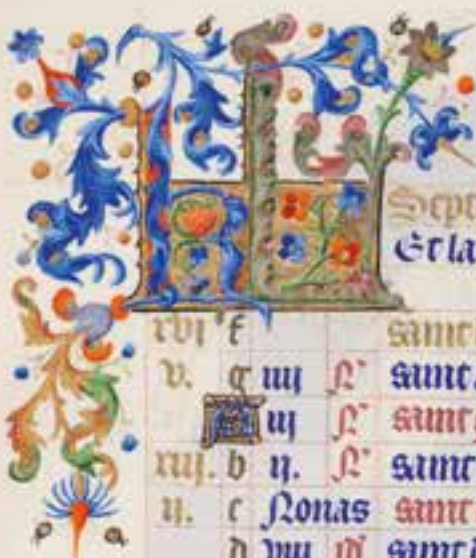 KL
Sept
Et la
xvi f sanct
v. g iiij N^s sanct
A iij N^s sanct
xiij. b ij. N^s sanct
ij. c Nonas sanct
d viij id sanct